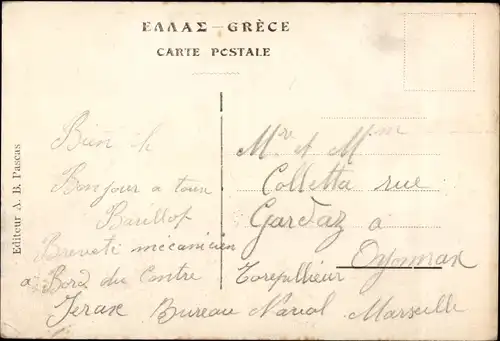 ΕΛΛΑΣ – GRÈCE
CARTE POSTALE
Editeur A. B. Pascas
Bien le
Bonjour a tous
Barillot
Breveté mecanicien
a Bord du Contre Torepillieur
Ierax Bureau Naval Marseille
Mr et Mm
Colletta rue
Gardaz a
Oyonnax